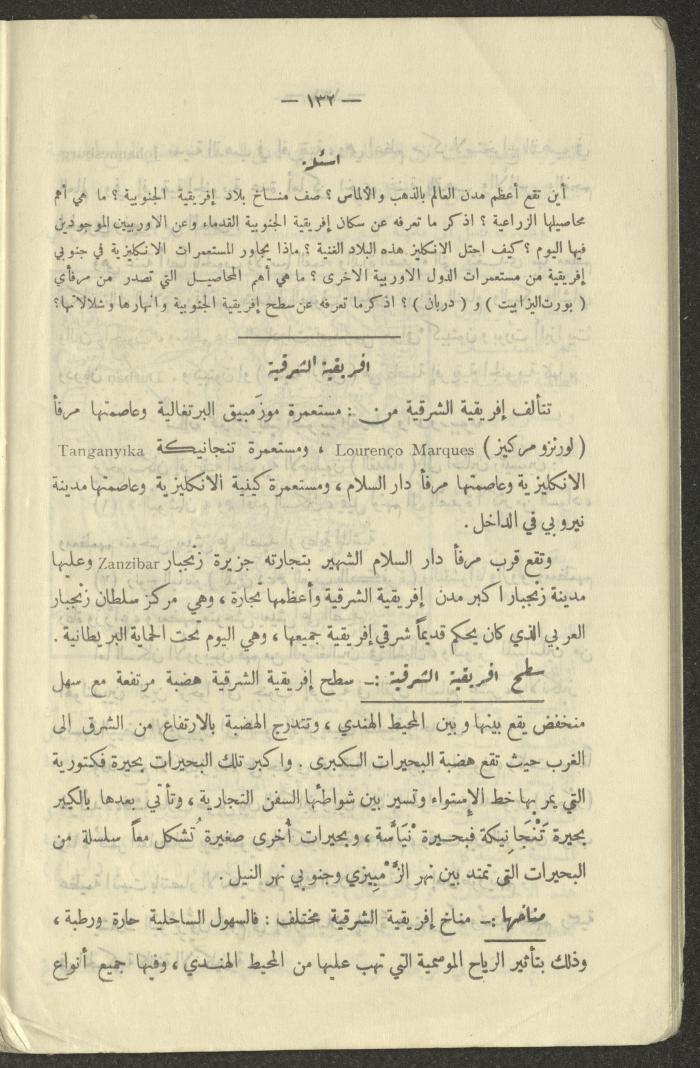 — ١٣٢ —
اسئلة
أين تقع أعظم مدن العالم بالذهب والألماس ؟ صف مناخ بلاد إفريقية الجنوبية ؟ ما هي أهم
محاصيلها الزراعية ؟ اذكر ما تعرفه عن سكان إفريقية الجنوبية القدماء وعن الاوربيين الموجودين
فيها اليوم ؟ كيف احتل الانكليز هذه البلاد الغنية ؟ ماذا يجاور المستعمرات الانكليزية في جنوبي
إفريقية من مستعمرات الدول الاوربية الاخرى ؟ ما هي أهم المحاصيل التي تصدر من مرفأي
( بورت اليزابيت ) و ( دربان ) ؟ اذكر ما تعرفه عن سطح إفريقية الجنوبية وانهارها وشلالاتها؟
افريقية الشرقية
تتألف إفريقية الشرقية من : مستعمرة موزمبيق البرتغالية وعاصمتها مرفأ
( لورنزو مركيز ) Lourenço Marques ، ومستعمرة تنجانيكة Tanganyika
الانكليزية وعاصمتها مرفأ دار السلام ، ومستعمرة كينية الانكليزية وعاصمتها مدينة
نيروبي في الداخل .
وتقع قرب مرفأ دار السلام الشهير بتجارته جزيرة زنجبار Zanzibar وعليها
مدينة زنجبار أكبر مدن إفريقية الشرقية وأعظمها تجارة ، وهي مركز سلطان زنجبار
العربي الذي كان يحكم قديماً شرقي إفريقية جميعها ، وهي اليوم تحت الحماية البريطانية .
سطح افريقية الشرقية :ـ سطح إفريقية الشرقية هضبة مرتفعة مع سهل
منخفض يقع بينها وبين المحيط الهندي ، وتتدرج الهضبة بالارتفاع من الشرق الى
الغرب حيث تقع هضبة البحيرات الكبرى . واكبر تلك البحيرات بحيرة فكتورية
التي يمر بها خط الإستواء وتسير بين شواطئها السفن التجارية ، وتأتي بعدها بالكبر
بحيرة تَنْجَانيكة فبحيرة نْيَاسَّة ، وبحيرات أخرى صغيرة تُشكل معاً سلسلة من
البحيرات التي تمتد بين نهر الزَّمْبيزي وجنوبي نهر النيل .
مناخها :ـ مناخ إفريقية الشرقية مختلف : فالسهول الساحلية حارة ورطبة ،
وذلك بتأثير الرياح الموسمية التي تهب عليها من المحيط الهندي ، وفيها جميع أنواع